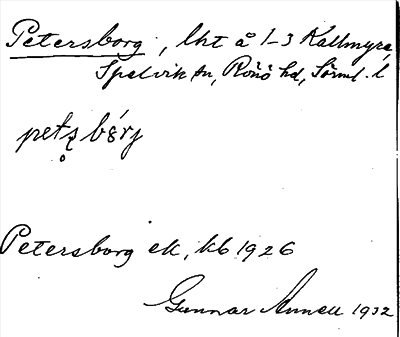 Petersborg, lht å 1–3 Kallmyra,
Spelvik sn, Rönö hd, Sörml. l
Petersborg ek, kb 1926
Gunnar Annell 1932